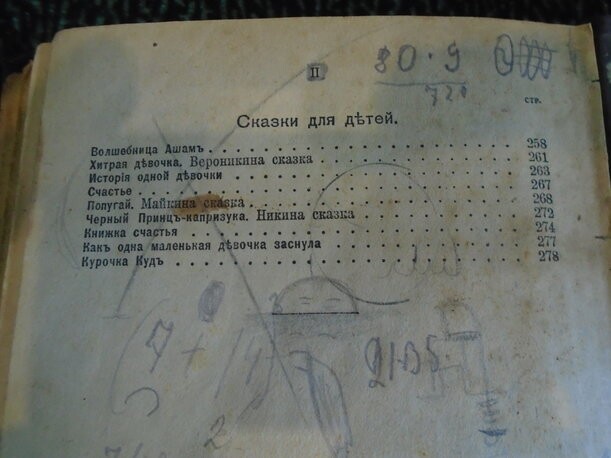 II
80·9
720
стр.
Сказки для дѣтей.
Волшебница Ашамъ . . . 258
Хитрая дѣвочка. Вероникина сказка . . . 261
Исторія одной дѣвочки . . . 263
Счастье . . . 267
Попугай. Майкина сказка . . . 268
Черный Принцъ-капризука. Никина сказка . . . 272
Книжка счастья . . . 274
Какъ одна маленькая дѣвочка заснула . . . 277
Курочка Кудъ . . . 278
7 +
2